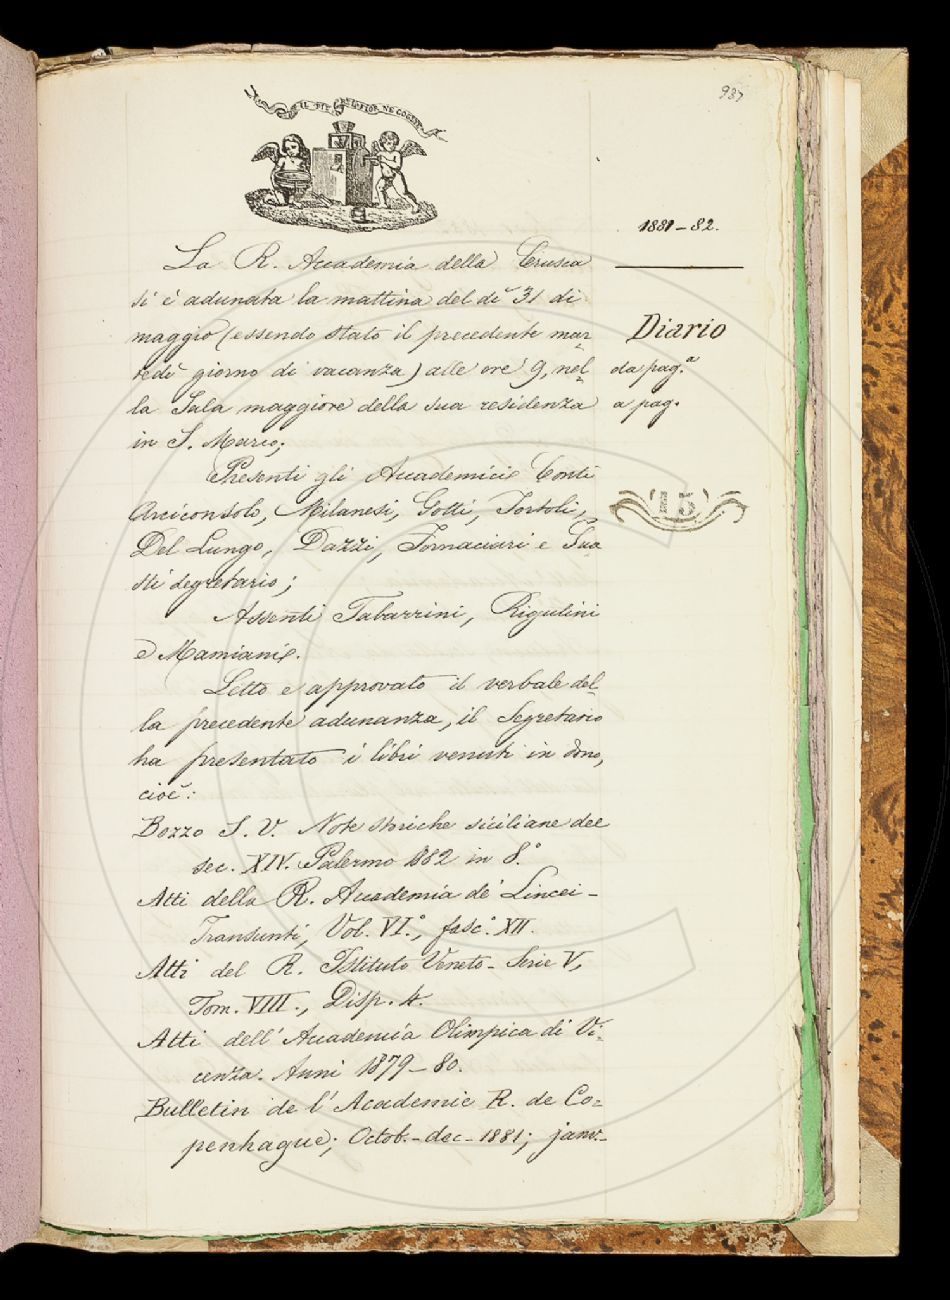 IL PIÙ BEL FIOR NE COGLIE
937
1881-82.
La R. Accademia della Crusca
si è adunata la mattina del dì 31 di
maggio (essendo stato il precedente mar=
tedì giorno di vacanza) alle ore 9, nel=
la Sala maggiore della sua residenza
in S. Marco;
Diario
da pag.ª
a pag.
15
Presenti gli Accademici Conti
Arciconsolo, Milanesi, Gotti, Tortoli,
Del Lungo, Dazzi, Fornaciari e Gua
sti segretario;
Assenti Tabarrini, Rigutini
e Mamiani.
Letto e approvato il verbale del=
la precedente adunanza, il Segretario
ha presentato i libri venuti in dono,
cioè:
Bozzo S. V. Note storiche siciliane del
sec. XIV. Palermo 1882 in 8.°
Atti della R. Accademia de' Lincei-
Transunti, Vol. VI.°, fasc.° XII.
Atti del R. Istituto Veneto - Serie V,
Tom. VIII., Disp. 4.
Atti dell' Accademia Olimpica di Vi=
cenza. Anni 1879-80.
Bulletin de l' Academie R. de Co=
penhague; Octob.-dec-1881; janv-